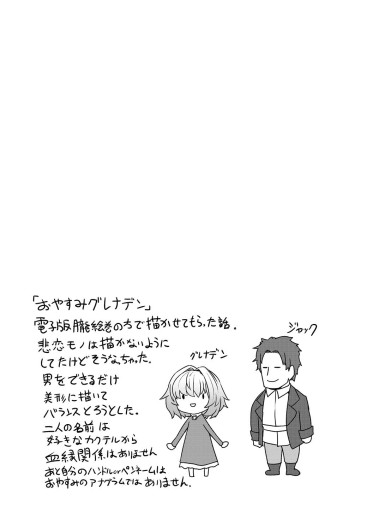 「おやすみグレナデン」
電子版朧絵巻の方で描かせてもらった話。
悲恋モノは描かないように
してたけどそうなっちゃった。
男をできるだけ
美形に描いて
バランスとろうとした。
二人の名前は
好きなカクテルから
血縁関係はありません
あと自分のハンドルorペンネームは
おやすみのアナグラムではありません。
グレナデン
ジャック